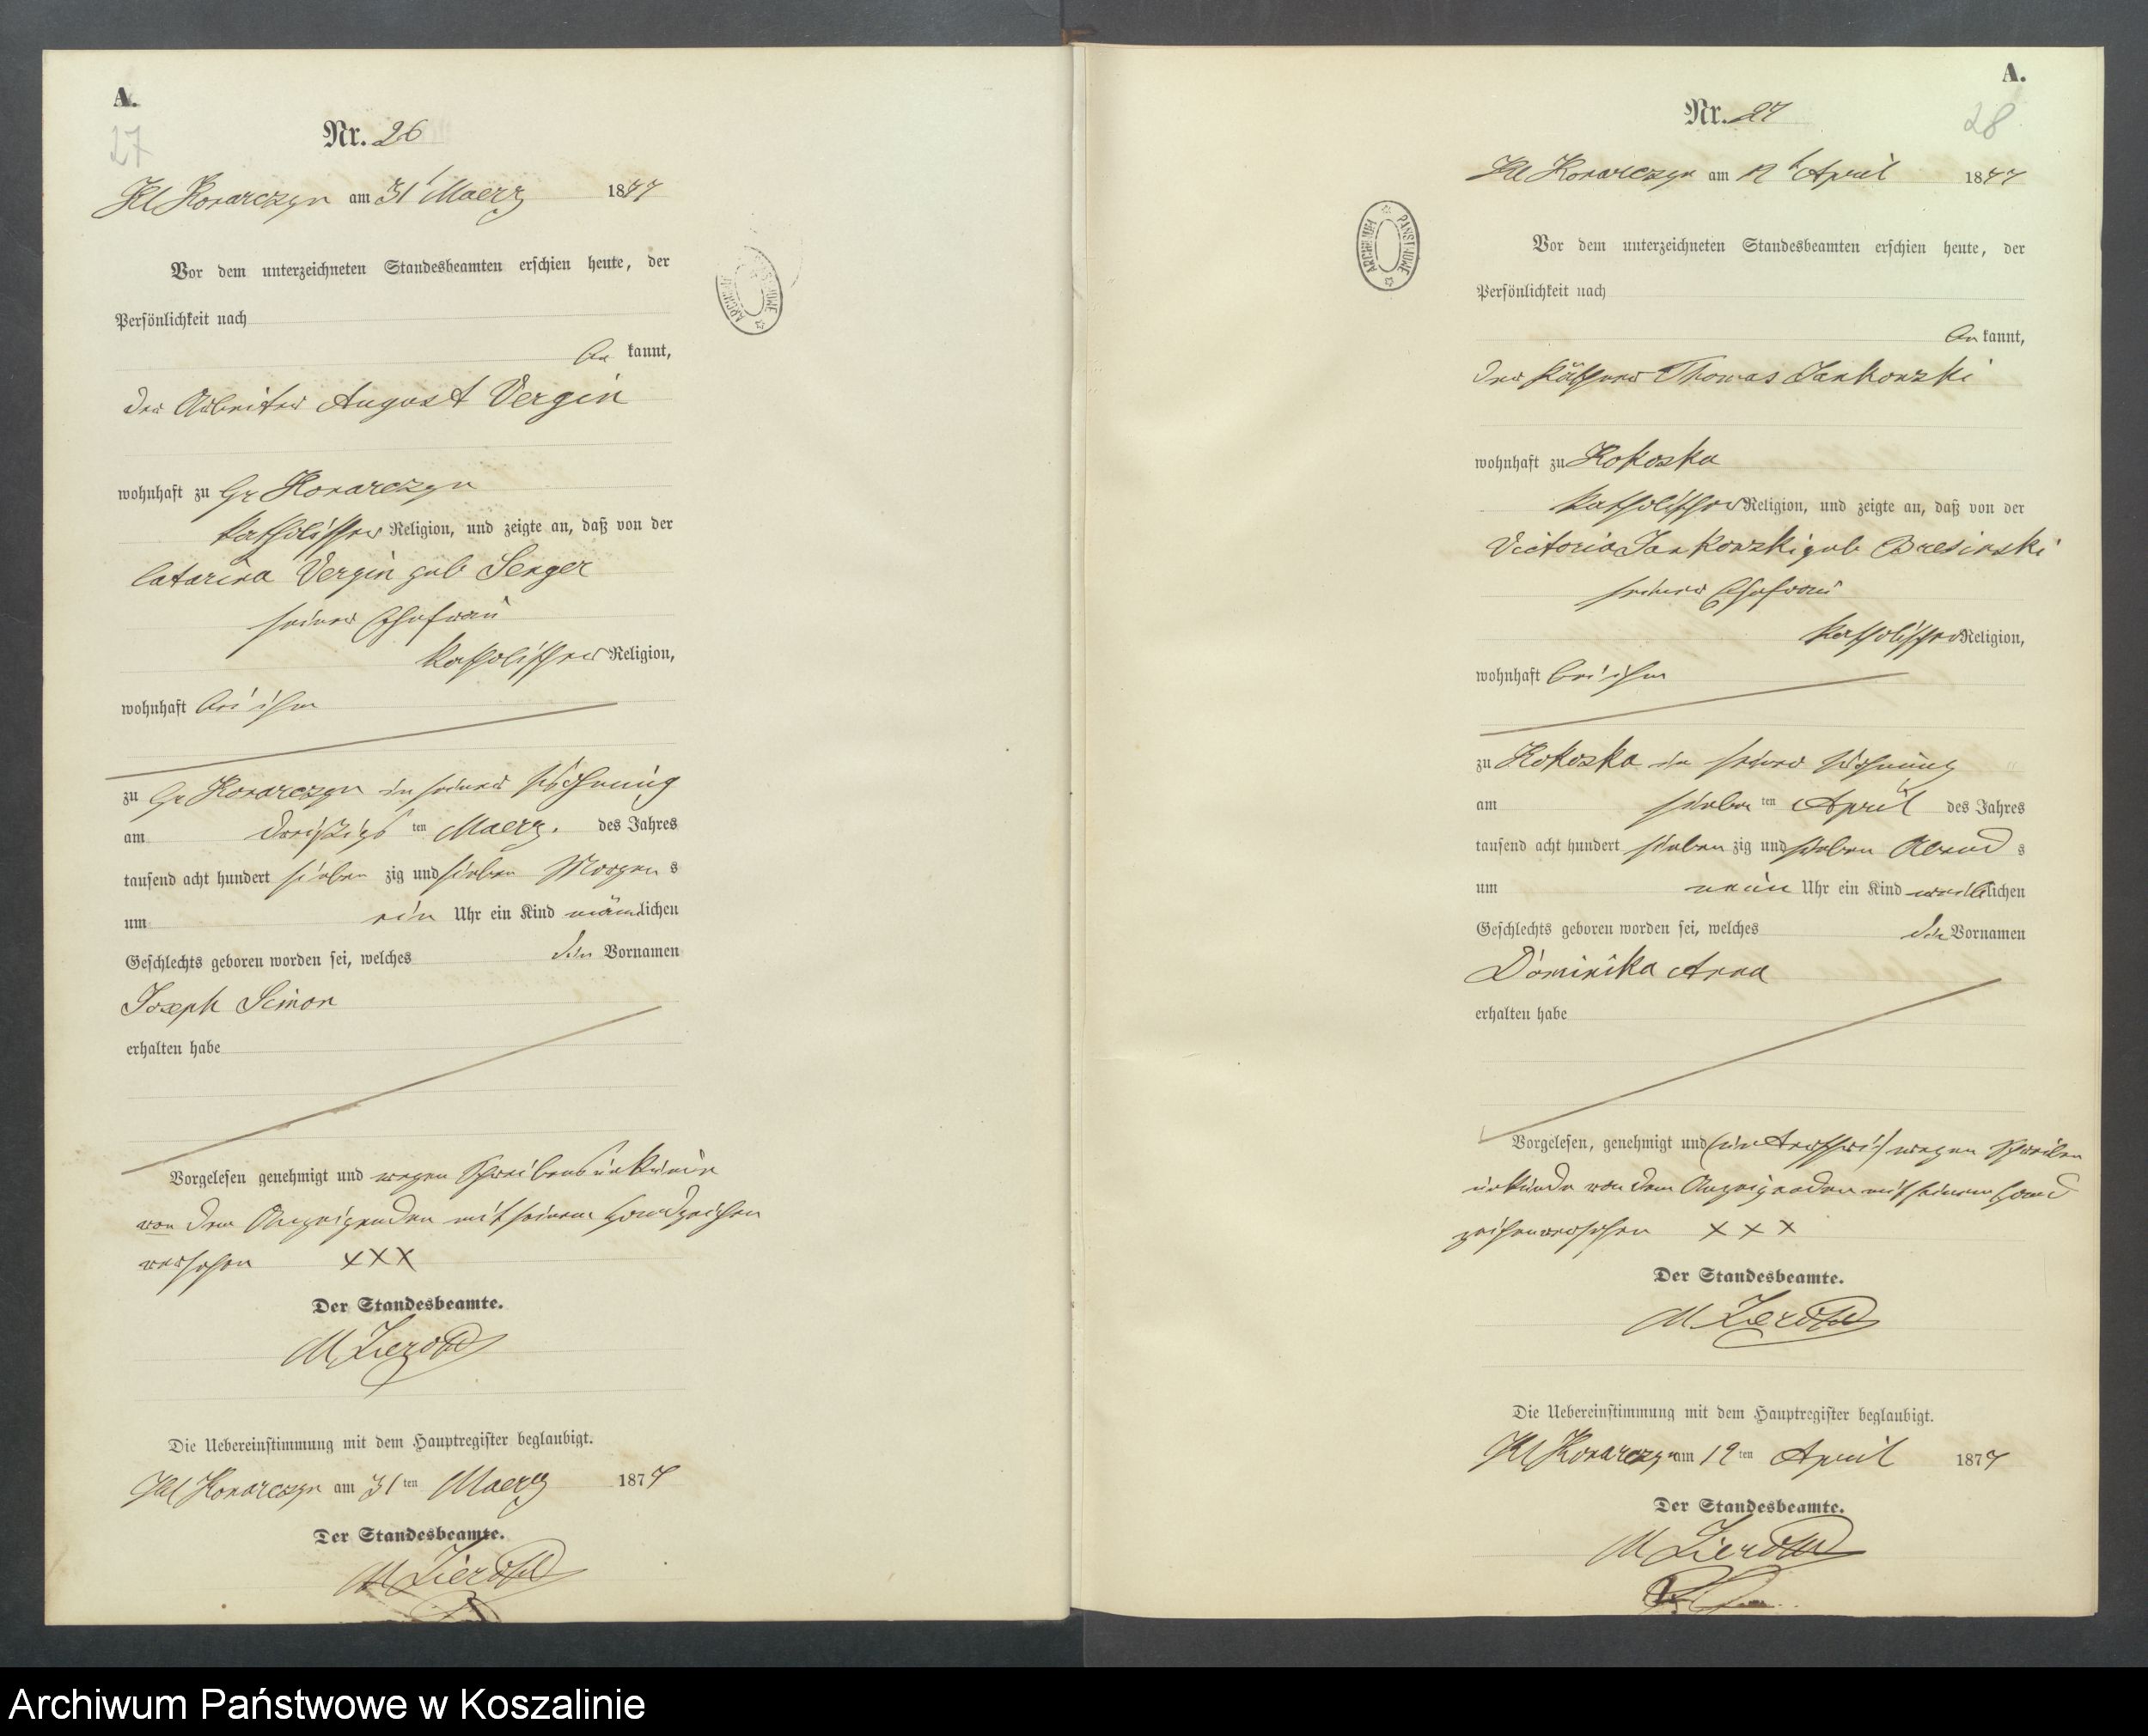 A.
27
Nr. 26
Kl Konarczyn am 31 t Maerz 1877
Vor dem unterzeichneten Standesbeamten erschien heute, der
Persönlichkeit nach
be kannt,
der Arbeiter August Vergin
wohnhaft zu Gr Konarczyn
katholischer Religion, und zeigte an, daß von der
Catarina Vergin geb Senger
seiner Ehefrau
katholischer Religion,
wohnhaft bei ihm
zu Gr Konarczyn in seiner Wohnung
am dreißigs ten Maerz. des Jahres
tausend acht hundert sieben zig und sieben Morgen s
um ein Uhr ein Kind männlichen
Geschlechts geboren worden sei, welches den Vornamen
Joseph Simon
erhalten habe
Vorgelesen genehmigt und wegen Schreibensunkunde
von dem Anzeigenden mit seinem Handzeichen
versehen XXX
Der Standesbeamte.
M Zieroth
Die Uebereinstimmung mit dem Hauptregister beglaubigt.
Kl Konarczyn am 31 ten Maerz 1877
Der Standesbeamte.
M Zieroth
A.
28
Nr. 27
Kl Konarczyn am 12 t April 1877
ARCHIWUM PAŃSTWOWE
Vor dem unterzeichneten Standesbeamten erschien heute, der
Persönlichkeit nach
be kannt,
der Käthner Thomas Jankowski
wohnhaft zu Kokoska
katholischer Religion, und zeigte an, daß von der
Victoria Jankowski geb Bresinski
seiner Ehefrau
katholischer Religion,
wohnhaft bei ihm
zu Kokoska in seiner Wohnung
am sieben ten April des Jahres
tausend acht hundert sieben zig und sieben Abend s
um neun Uhr ein Kind weiblichen
Geschlechts geboren worden sei, welches den Vornamen
Dominika Anna
erhalten habe
Vorgelesen, genehmigt und wegen Schreiben
unkunde von dem Anzeigenden mit seinem Hand
zeichen versehen XXX
Der Standesbeamte.
M Zieroth
Die Uebereinstimmung mit dem Hauptregister beglaubigt.
Kl Konarczyn am 12 ten April 1877
Der Standesbeamte.
M Zieroth
Archiwum Państwowe w Koszalinie